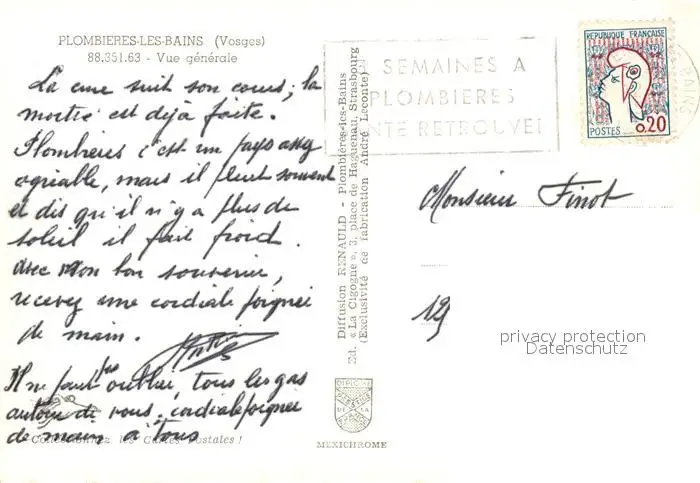 PLOMBIERES-LES-BAINS (Vosges)
88.351.63 - Vue générale
La cure suit son cours; la
moitié est déjà faite.
Plombières c'est un pays assez
agréable, mais il pleut souvent
et dis qu'il n'y a plus de
soleil il fait froid.
Avec mon bon souvenir,
recevez une cordiale poignée
de main.
Il ne faut pas oublier, tous les gas
autour de vous. cordiale poignée
de main à tous
Collectionnez les Cartes Postales !
Diffusion RENAULD - Plombières-les-Bains
Ed. « La Cigogne », 3, place de Haguenau, Strasbourg
(Exclusivité de fabrication André Leconte)
MEXICHROME
SEMAINES A
PLOMBIERES
NTE RETROUVEE
REPUBLIQUE FRANÇAISE
POSTES 0,20
Monsieur Finot
129
privacy protection
Datenschutz